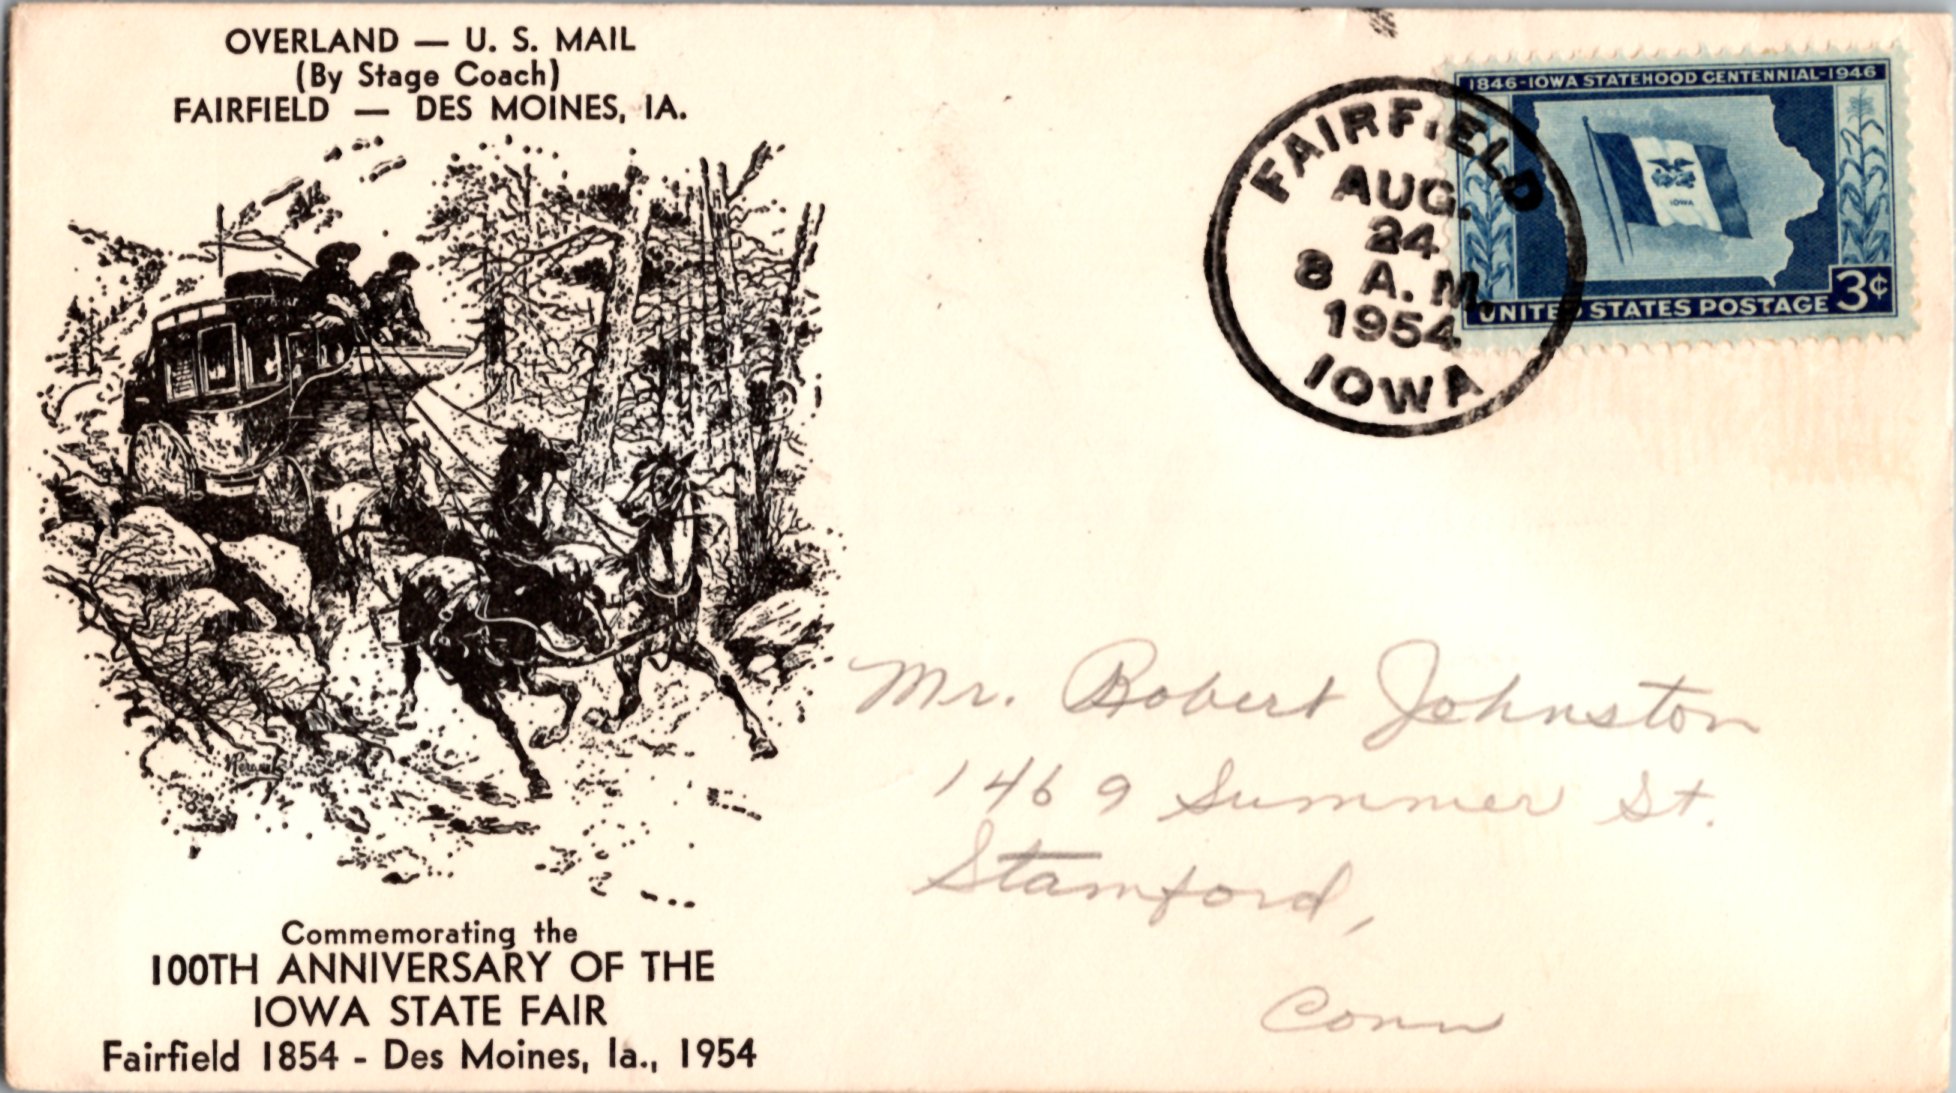 OVERLAND — U. S. MAIL
(By Stage Coach)
FAIRFIELD — DES MOINES, IA.
Commemorating the
100TH ANNIVERSARY OF THE
IOWA STATE FAIR
Fairfield 1854 - Des Moines, Ia., 1954
FAIRFIELD
AUG.
24
8 A. M.
1954
IOWA
1846-IOWA STATEHOOD CENTENNIAL-1946
IOWA
UNITED STATES POSTAGE 3¢
Mr. Robert Johnston
1469 Summer St.
Stamford,
Conn